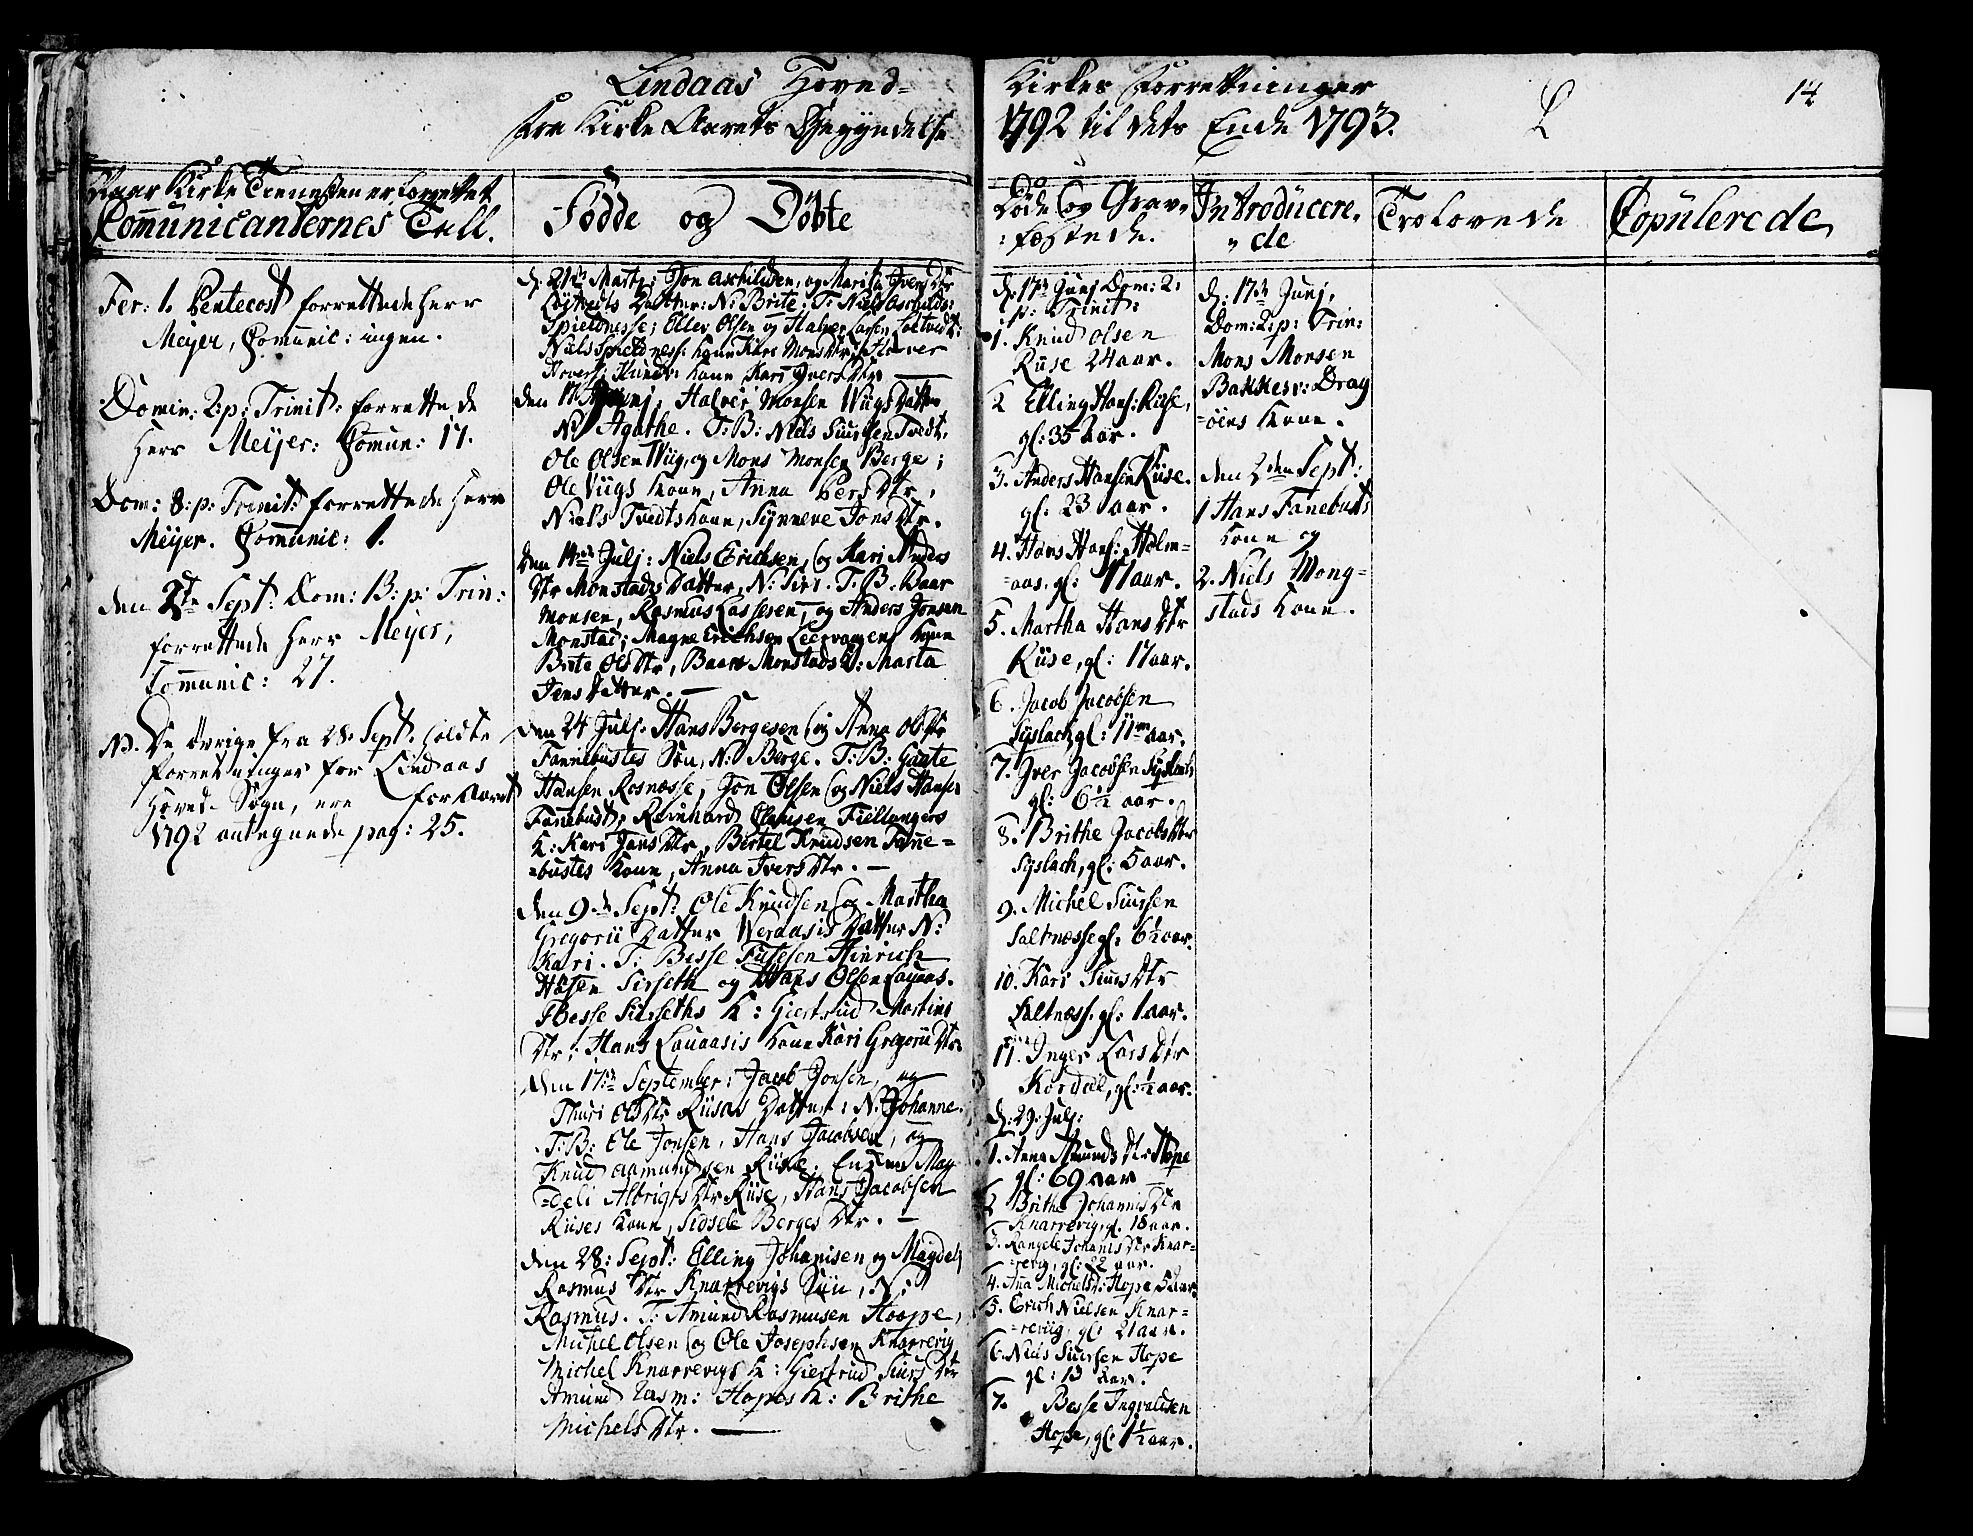 Lindaas Hoved-
Kirkes Forretninger
14
fra Kirke Aarets Begyndelse
1792 til dets Ende 1793.
Naar Kirke Tienesten er forrettet
Com̄unicanternes Tall.
Fødde og Døbte
Døde og Grav-
fæstede.
Introducere-
de
Trolovede
Copulerede
Fer: 1. Pentecost forrettede Herr
Meyer, Com̄unic: ingen.
Domin: 2: p: Trinit: forrettede
Herr Meijer: Com̄un: 17.
Dom: 8: p: Trinit: forrettede Herr
Meijer. Com̄unic: 1.
den 2de Sept: Dom: 13: p: Trin:
forrettede Herr Meyer,
Com̄unic: 27.
NB. De øvrige fra 28. Sept. holdte
forretninger for Lindaas
Hoved-Sogn, ere for Aaret
1792 antegnede pag: 25.
Martz: Jon Aschildsen, og Marita Ivers Dtr
Datter: N: Brite. T: Niels
Ollev Olsen og Halver Larsen
Niels kone Kari Mons Dtr,
kone Kari Ivers Dtr
den 17 Junj, Halver Monsen Wiigs Datter
N: Agathe. T: B: Niels Siursen Tvedt,
Ole Olsen Wiig, og Mons Monsen Berge;
Ole Viigs Kone, Anna Pers Dtr,
Niels Tvedts kone, Synneve Jons Dtr.
den 14de Julj: Niels Erichsen, og Kari Anders
Dtr Monstads Datter, N: Siri. T. B. Baar
Monsen, Rasmus Lassesen, og Anders Jonsen
Monstad; Magne Erichsen kone
Brite Ols Dtr, Baars Monstads K: Marta
Jens datter. —
den 24 Julj. Hans Bergesen og Anna Ols Dtr
Fannebustes Søn, N: Berge. T: B: Gaute
Hansen Rosnæsse, Jon Olsen og Niels Hansen
Fan̄ebust; Reinhard Clausen Fiellangers
K: Kari Jans Dtr, Bertel Knudsen Fan̄e-
bustes Kone, Anna Ivers Dtr. —
den 9de Sept: Ole Knudsen og Martha
Gregorii Datter Weraasis Datter N:
Kari. T: Besse Hinrich
Sirseth og Hans Olsen Lauaas.
Besse Sirseths K: Giertrud Martins
Dtr; Hans Lauaasis Kone Kari Gregorii Dtr.
den 17de September: Jacob Jonsen, og
Thuri Ols Dtr Riisas Datter: N: Johanne.
T: B: Ole Jonsen, Hans Jacobsen, og
Knud Aamundsen Riise. Mag-
deli Albrigts Dtr Riise, Hans Jacobsen
Riises kone, Sidsele Berges Dtr. —
den 28: Sept: Elling Johanisen og Magdeli
Rasmus Dtr Knarrevigs Søn, N:
Rasmus. T: Amund Rasmusen Hoope,
Michel Olsen og Ole Josephsen Knarrevig
Michel Knarrevigs K: Giertrud Siurs Dtr
Amund Rasm: Hopes K: Brithe
Michels Dtr. —
d: 17de Junj Dom: 2:
p: Trinit:
1. Knud Olsen
Riise 24 aar.
2 Elling Hans: Riise,
gl: 35 Aar.
3. Anders Hansen Riise.
gl: 23 Aar.
4. Hans Hans: Holm-
aas, gl: 17 aar.
5. Martha Hans Dtr
Riise, gl: 17 aar.
6. Jacob Jacobsen
Syslach, gl: 11 aar.
7. Iver Jacobsen Syslach
gl: 6½ aar.
8. Brithe Jacobs Dtr
Syslach, gl: 5 aar.
9. Michel Siursen
Saltnæsse gl: 6½ aar.
10. Kari Siurs Dtr
Saltnæss. gl: 1 aar.
11. Inger Lars Dtr
Kordal, gl: ½ aar.
d: 29. Julj:
1. Anna Amunds Dtr Hope
gl: 69 aar
2 Brithe Johannis Dtr
Knarrevig, gl. 18 aar.
3. Rangele Johanis Dtr Knar-
revig, gl: 22 aar.
4. Ana Michelsd: Hope 5 aar.
5. Erich Nielsen Knar-
reviig, gl: 21 aar.
6. Niels Siursen Hope
gl: 13 aar.
7. Besse Ingvaldsen
Hope, gl: 1½ aar.
d: 17de Junj,
Dom: 2: p: Trin:
Mons Monsen
Bakkesv: Drag-
øens Kone.
den 2den Sept:
1 Hans Fanebusts
Kone og
2. Niels Mong-
stads Kone.